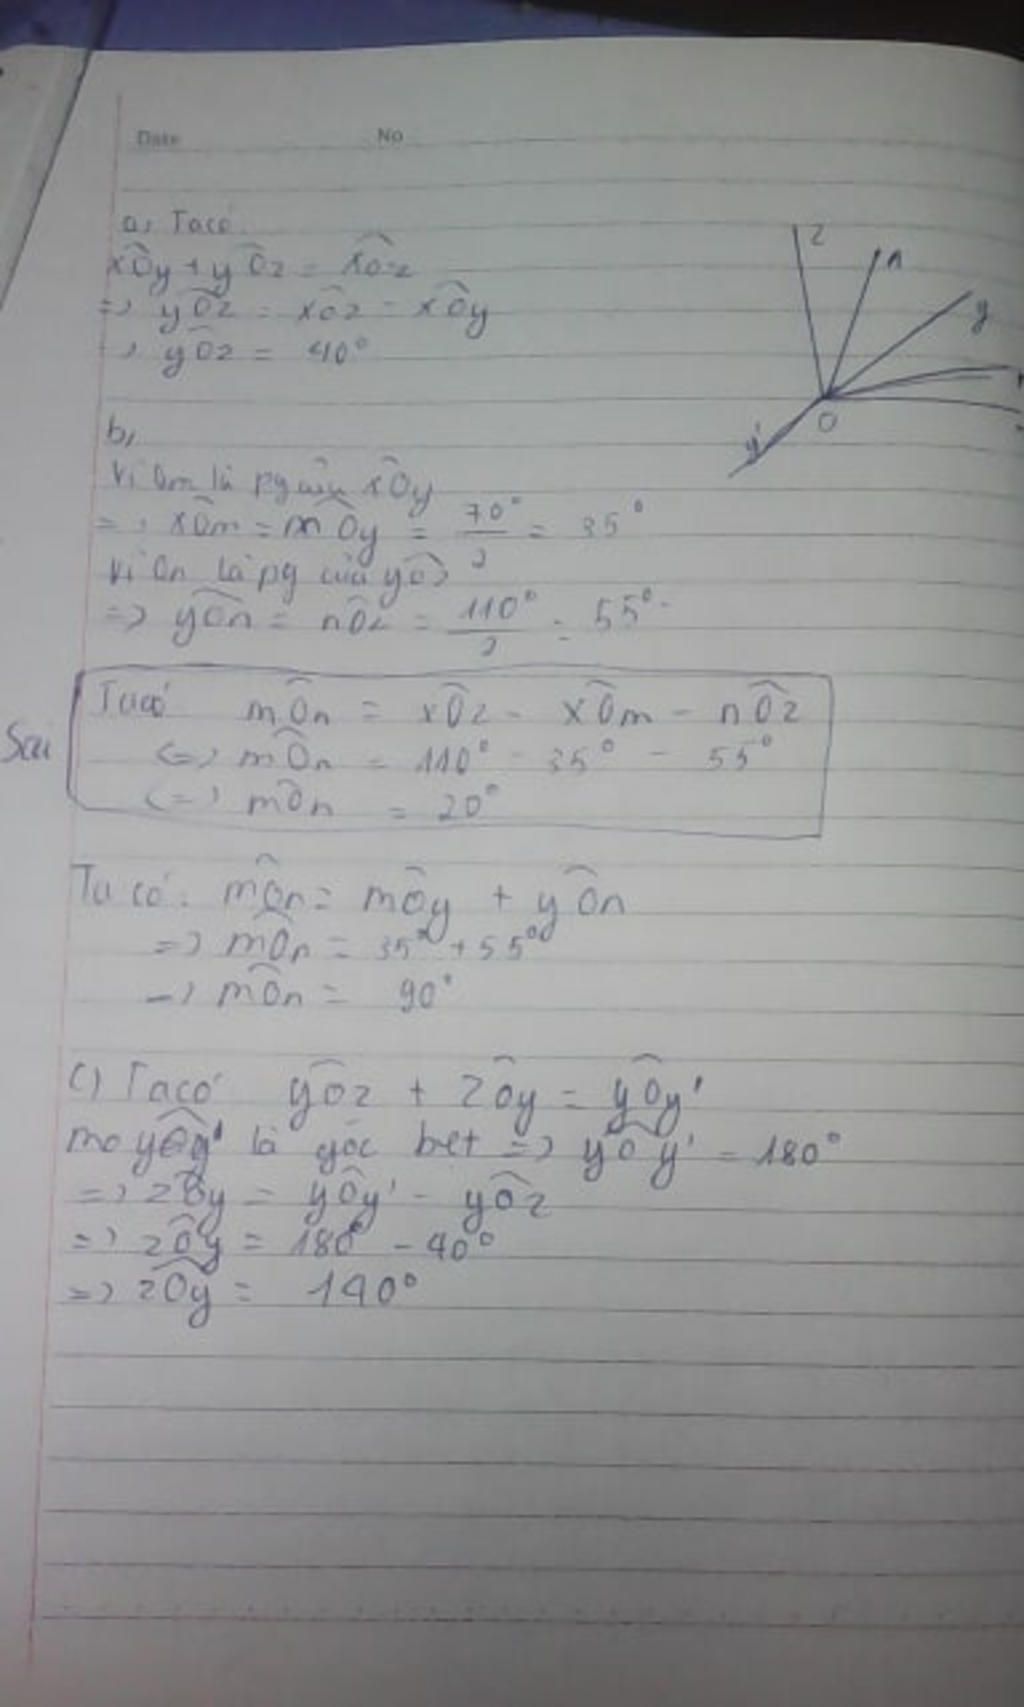 Date No
a, Ta có
xÔy + yÔz = xÔz
=> yÔz = xÔz - xÔy
=> yÔz = 40°
z
n
y
O
y'
b,
Vì Om là pg của xÔy
=> xÔm = mÔy = 70°/2 = 35°
Vì On là pg của yÔz
=> yÔn = nÔz = 110°/2 = 55°
Sai
Ta có mÔn = xÔz - xÔm - nÔz
<=> mÔn = 110° - 35° - 55°
<=> mÔn = 20°
Ta có: mÔn = mÔy + yÔn
=> mÔn = 35° + 55°
=> mÔn = 90°
c) Ta có yÔz + zÔy = yÔy'
mo yÔy' là góc bet => yÔy' = 180°
=> zÔy = yÔy' - yÔz
=> zÔy = 180° - 40°
=> zÔy = 140°